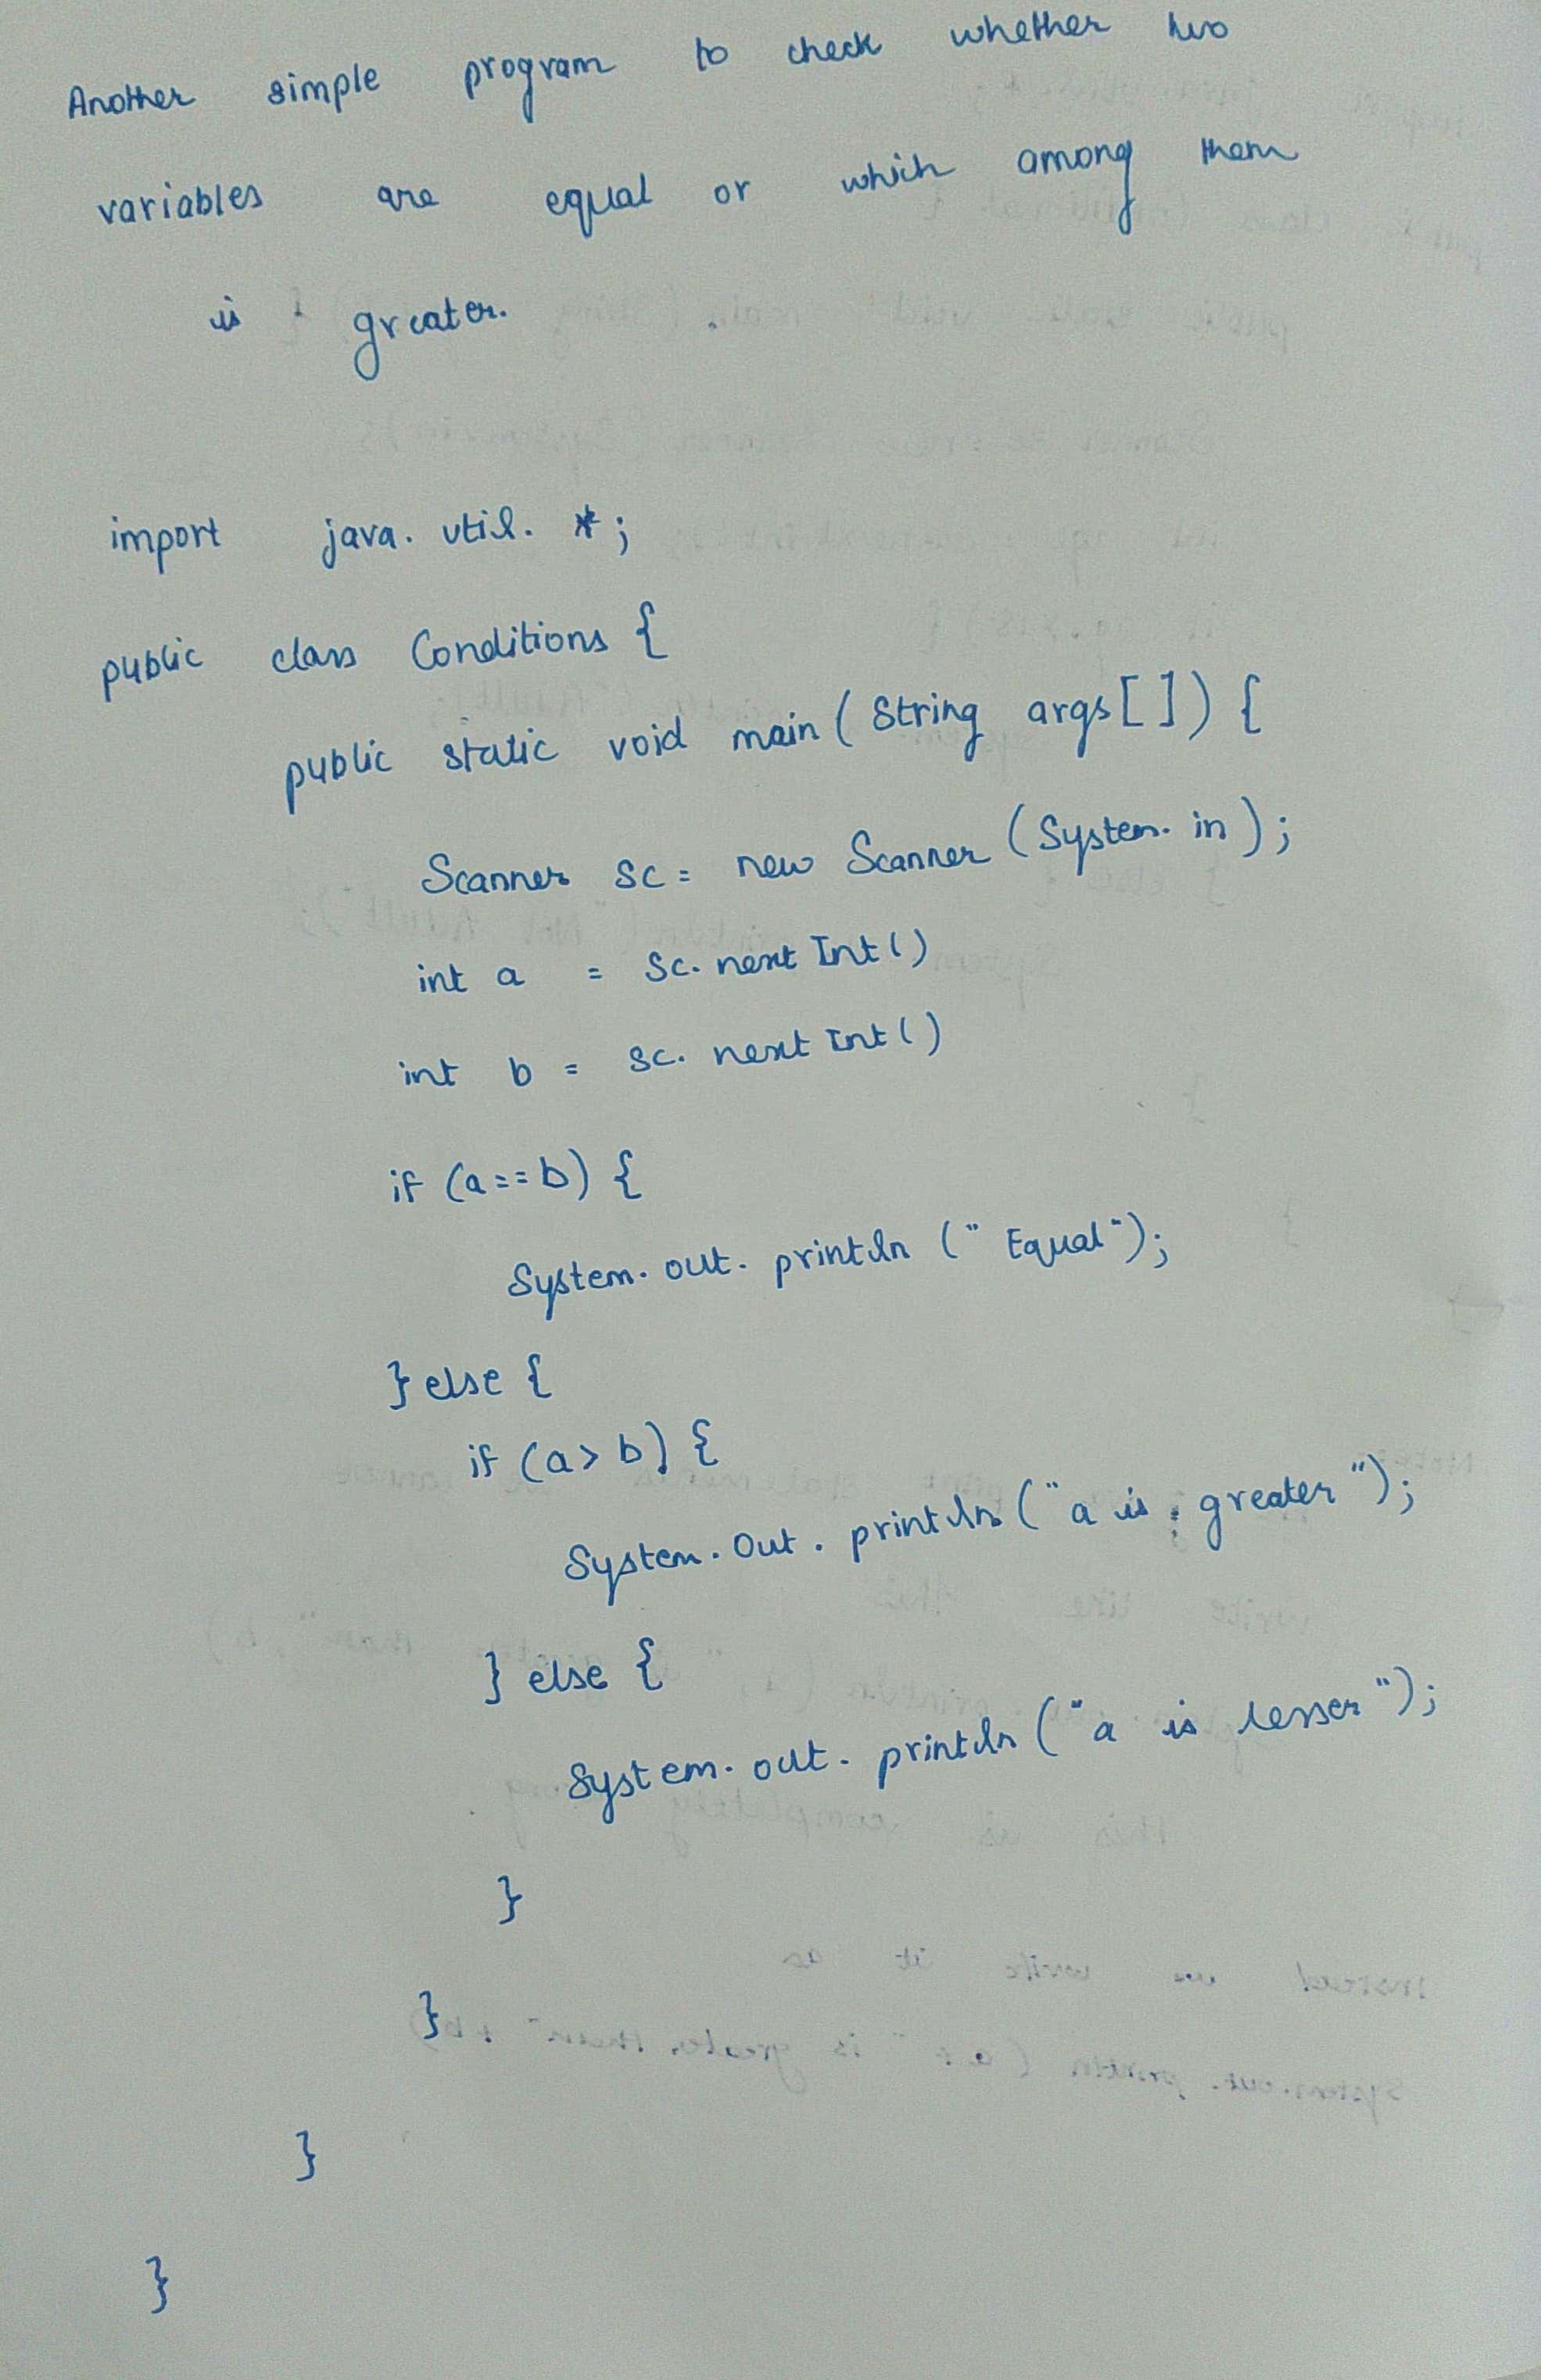 Another simple program to check whether two
variables are equal or which among them
is greater.
import java. util. *;
public class Conditions {
public static void main ( String args [ ] ) {
Scanner sc = new Scanner ( System. in ) ;
int a = sc. next Int ( )
int b = sc. next Int ( )
if (a == b) {
System. out. println (" Equal ");
} else {
if (a > b) {
System. out. println ("a is greater ");
} else {
System. out. println ("a is lesser ");
}
}
}
}